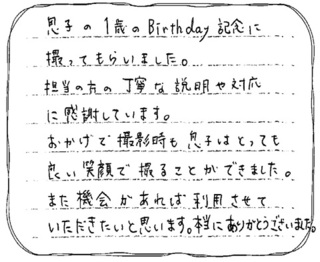 息子の1歳のBirthday記念に
撮ってもらいました。
担当の方の丁寧な説明や対応
に感謝しています。
おかげで撮影時も息子はとっても
良い笑顔で撮ることができました。
また機会があれば利用させて
いただきたいと思います。本当にありがとうございました。